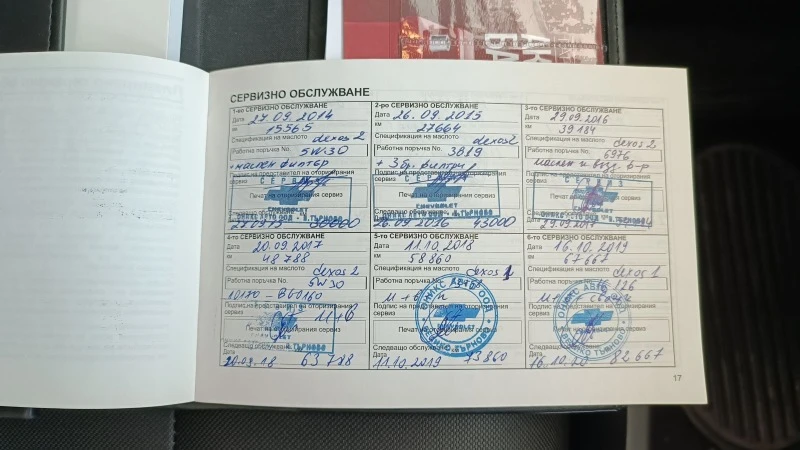 СЕРВИЗНО ОБСЛУЖВАНЕ
1-во СЕРВИЗНО ОБСЛУЖВАНЕ
Дата 27.09.2014
км 15565
Спецификация на маслото dexos2
Работна поръчка No. 5W30
маслен филтър
Подпис на представител на оторизирания сервиз
СЕРВИЗ
Печат на оторизирания сервиз
CHEVROLET
ОНИКС АУТО ООД - В.ТЪРНОВО
2-ро СЕРВИЗНО ОБСЛУЖВАНЕ
Дата 26.09.2015
км 27664
Спецификация на маслото dexos2
Работна поръчка No. 3819
+ 3 бр. филтри
Подпис на представител на оторизирания сервиз
СЕРВИЗ
Печат на оторизирания сервиз
CHEVROLET
26.09.2016 43000
3-то СЕРВИЗНО ОБСЛУЖВАНЕ
Дата 29.09.2016
км 39184
Спецификация на маслото dexos 2
Работна поръчка No. 6976
маслен и възд. ф-р
Подпис на представител на оторизирания сервиз
СЕРВИЗ
Печат на оторизирания сервиз
CHEVROLET
29.09.2017
4-то СЕРВИЗНО ОБСЛУЖВАНЕ
Дата 20.09.2017
км 48788
Спецификация на маслото dexos2
Работна поръчка No. 5W30
Подпис на представител на оторизирания сервиз
Печат на оторизирания сервиз
Следващо обслужване
Дата 20.09.18 63788
5-то СЕРВИЗНО ОБСЛУЖВАНЕ
Дата 11.10.2018
км 58860
Спецификация на маслото dexos 1
Работна поръчка No.
Подпис на представител на оторизирания сервиз
Печат на оторизирания сервиз
ОНИКС АУТО ООД
CHEVROLET
ВЕЛИКО ТЪРНОВО
Следващо обслужване
Дата 11.10.2019 73860
6-то СЕРВИЗНО ОБСЛУЖВАНЕ
Дата 16.10.2019
км 67667
Спецификация на маслото dexos 1
Работна поръчка No. 126
Подпис на представител на оторизирания сервиз
Печат на оторизирания сервиз
ОНИКС АУТО
ВЕЛИКО ТЪРНОВО
Следващо обслужване
Дата 16.10.20 82667
17